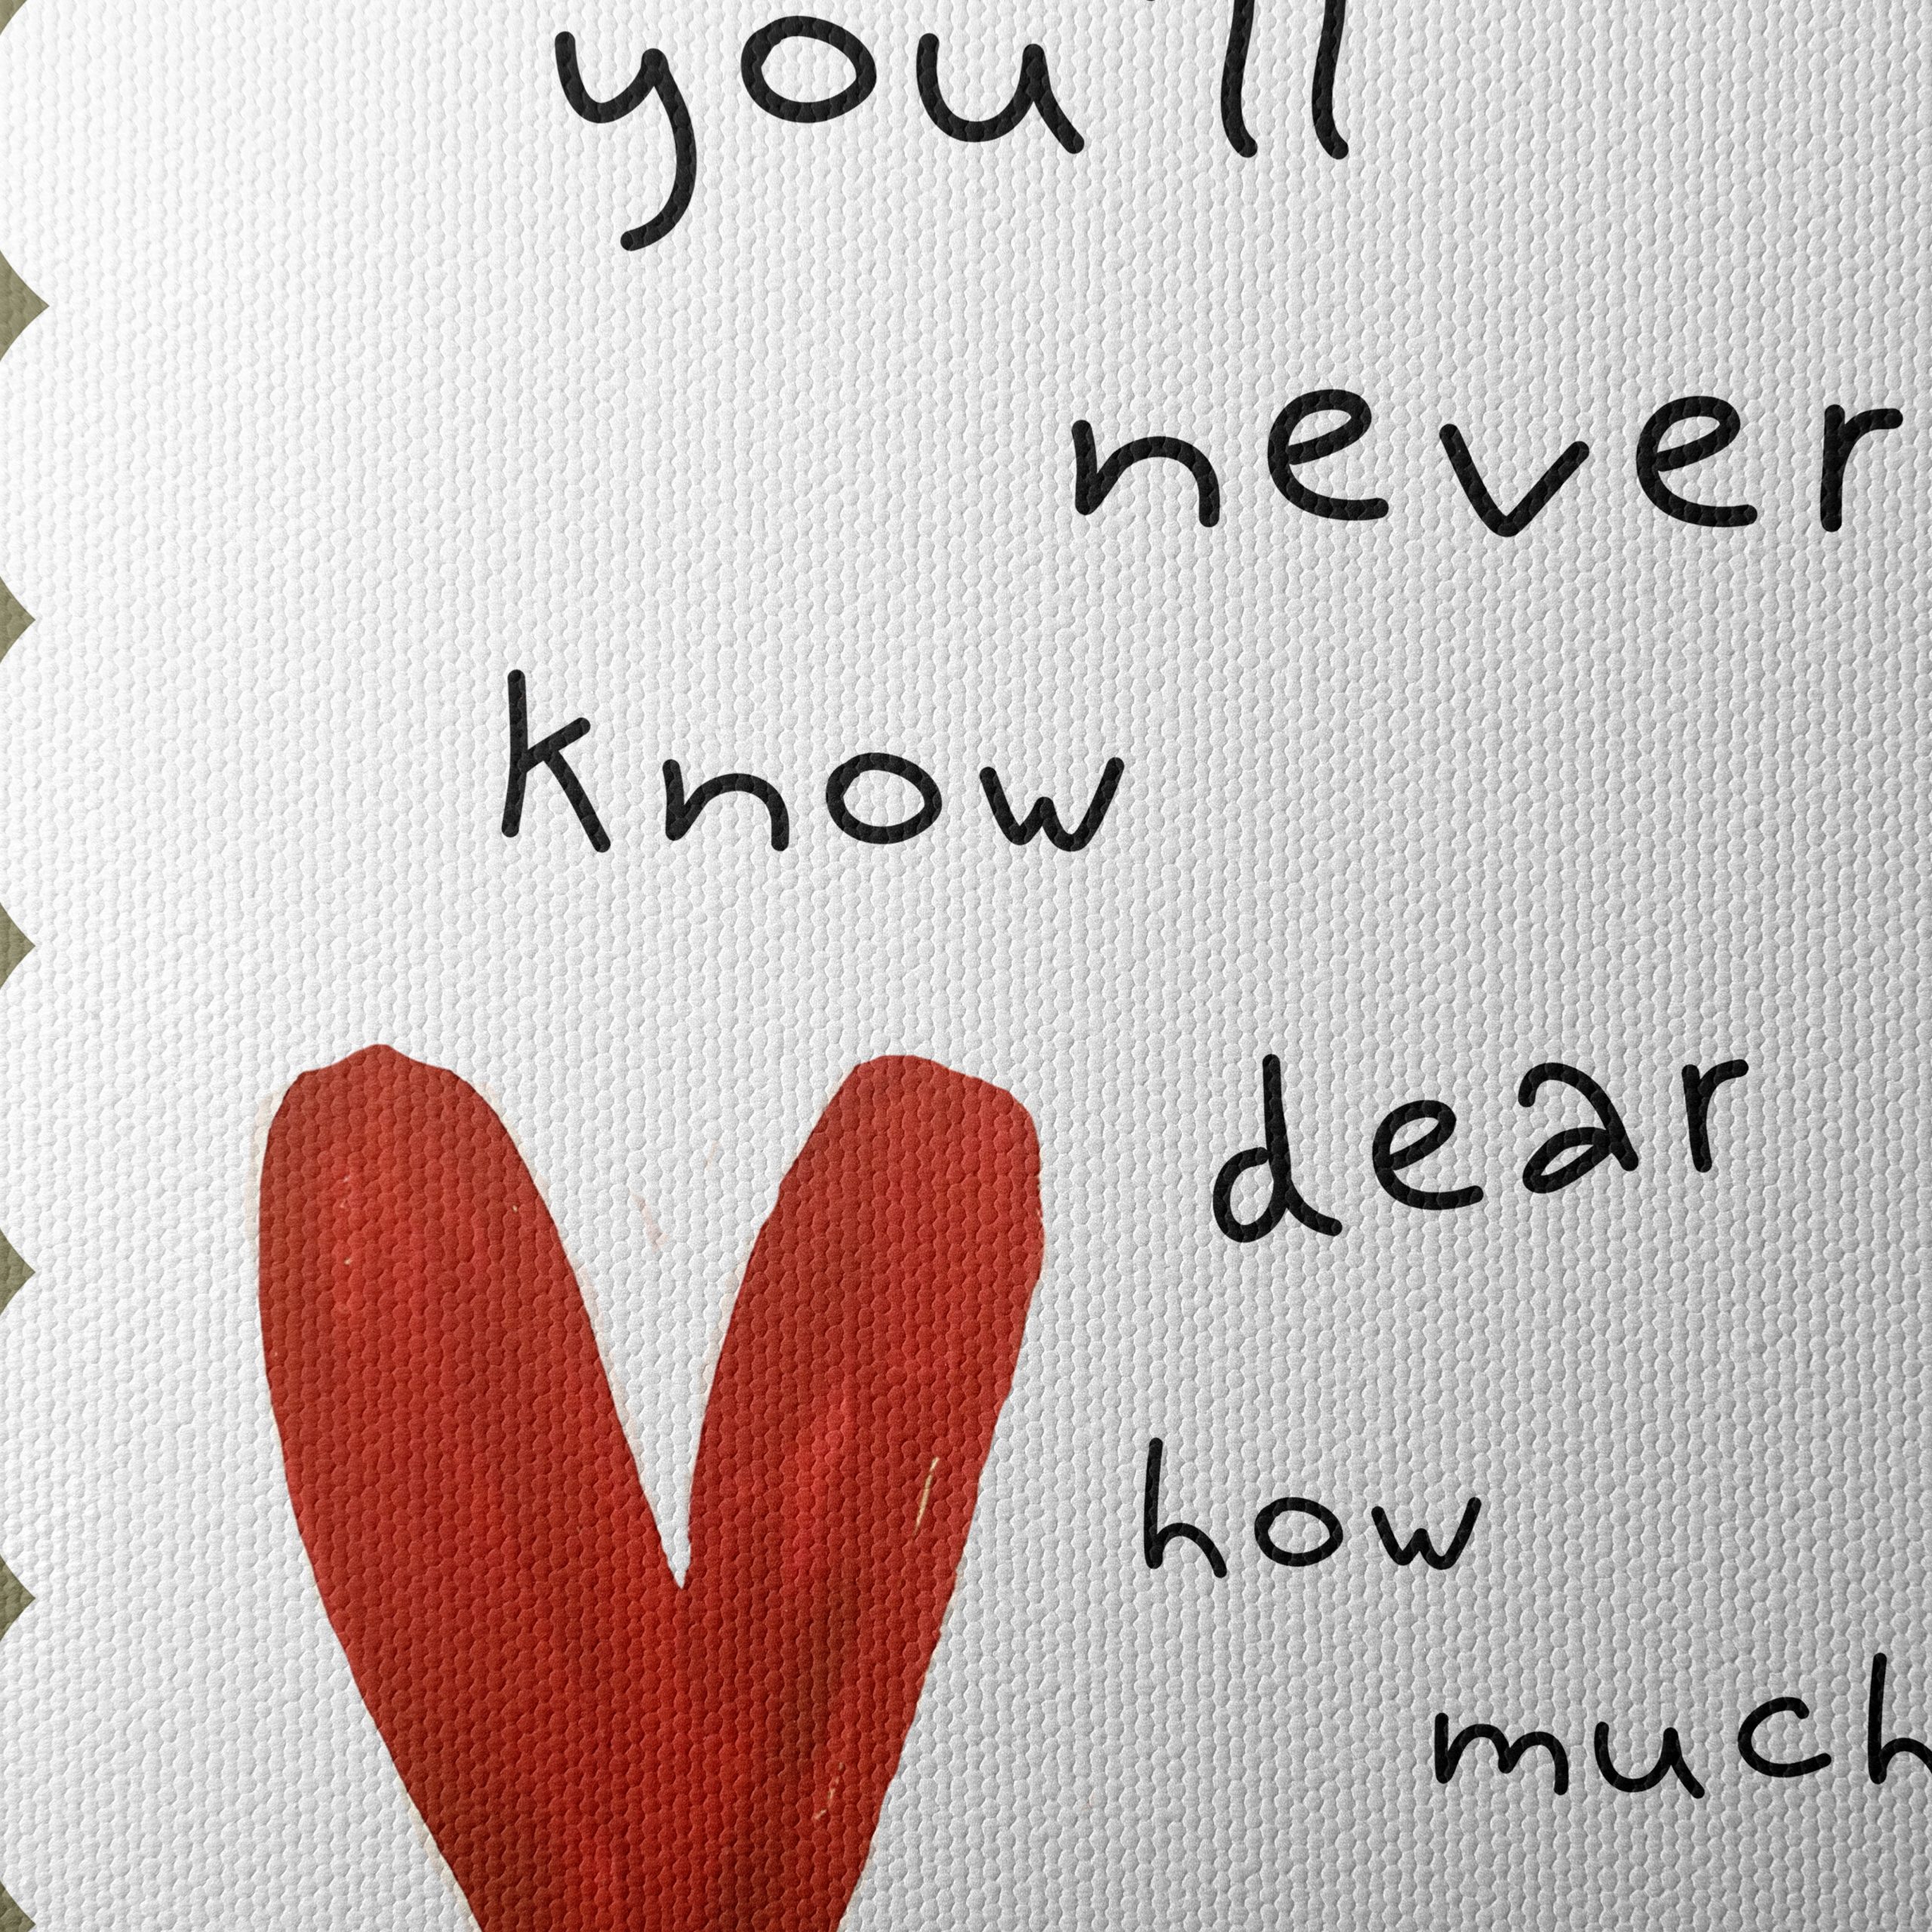 you'll
never
know
dear
how
much